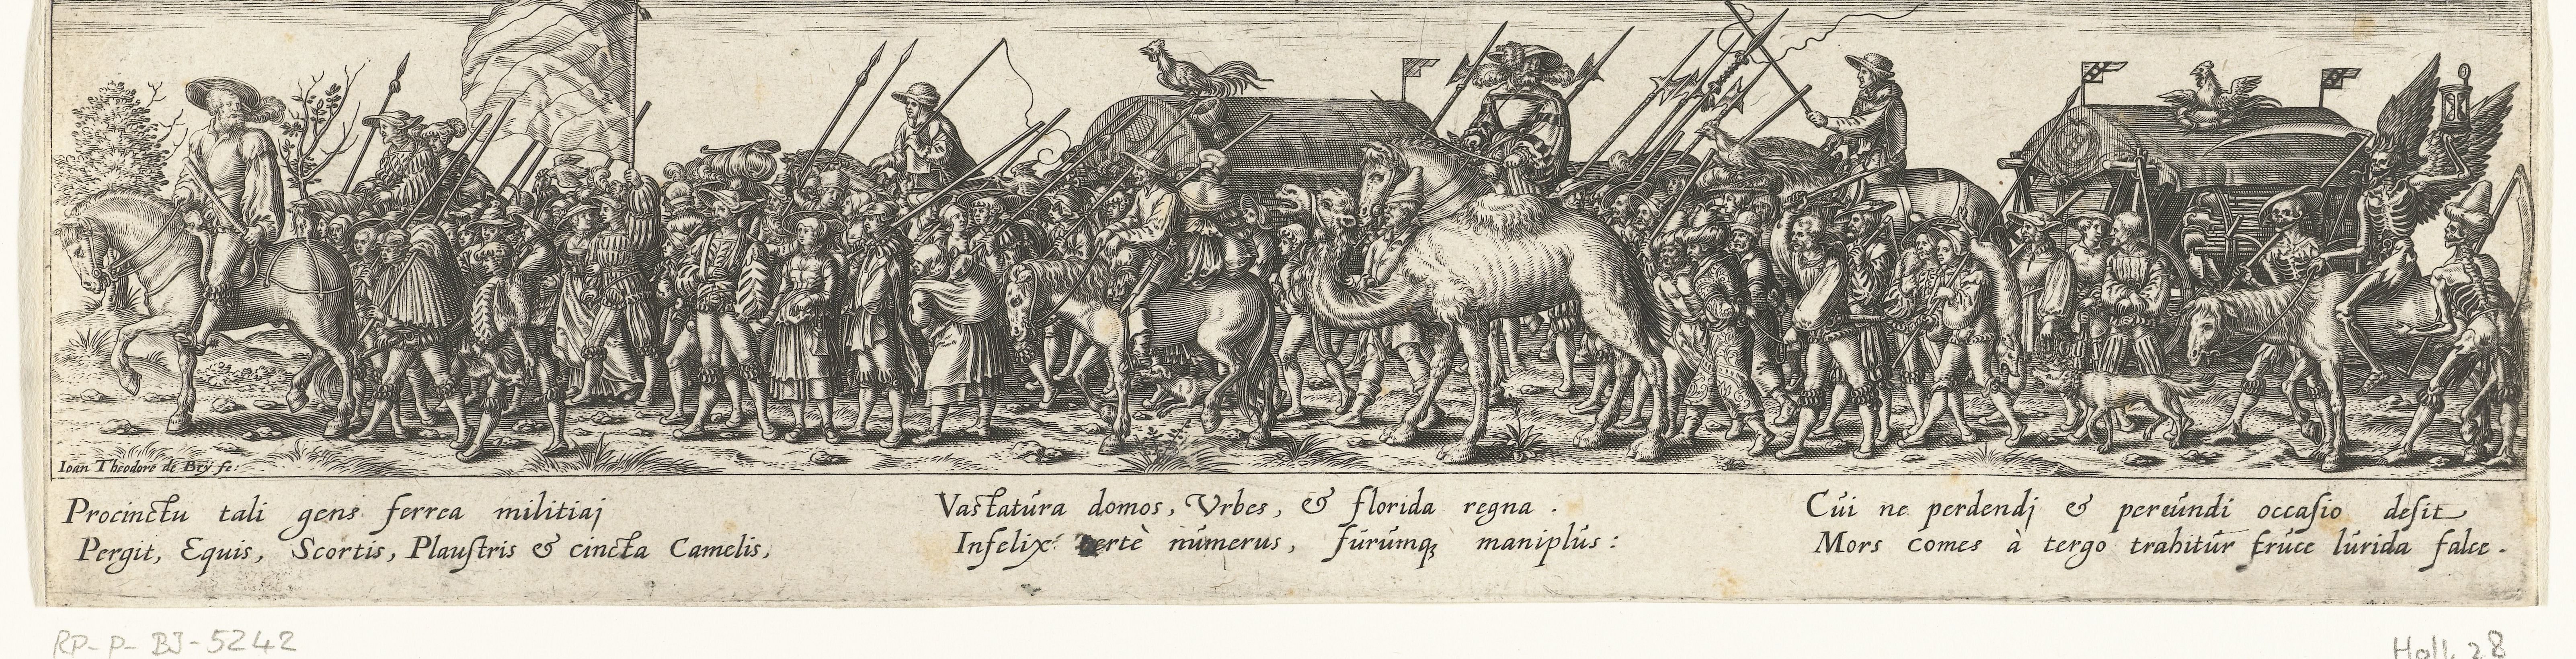 Ioan Theodore de Brÿ fe:
Procinctu tali gens ferrea militiaj
Pergit, Equis, Scortis, Plauſtris & cincta Camelis,
Vastatúra domos, Vrbes, & florida regna .
Infelix certè númerus, fúrúmq; maniplús:
Cúi ne perdendj & pereúndi occaſio deſit
Mors comes à tergo trahitúr trúce lúrida falce.
RP-P-BI-5242
Holl. 28